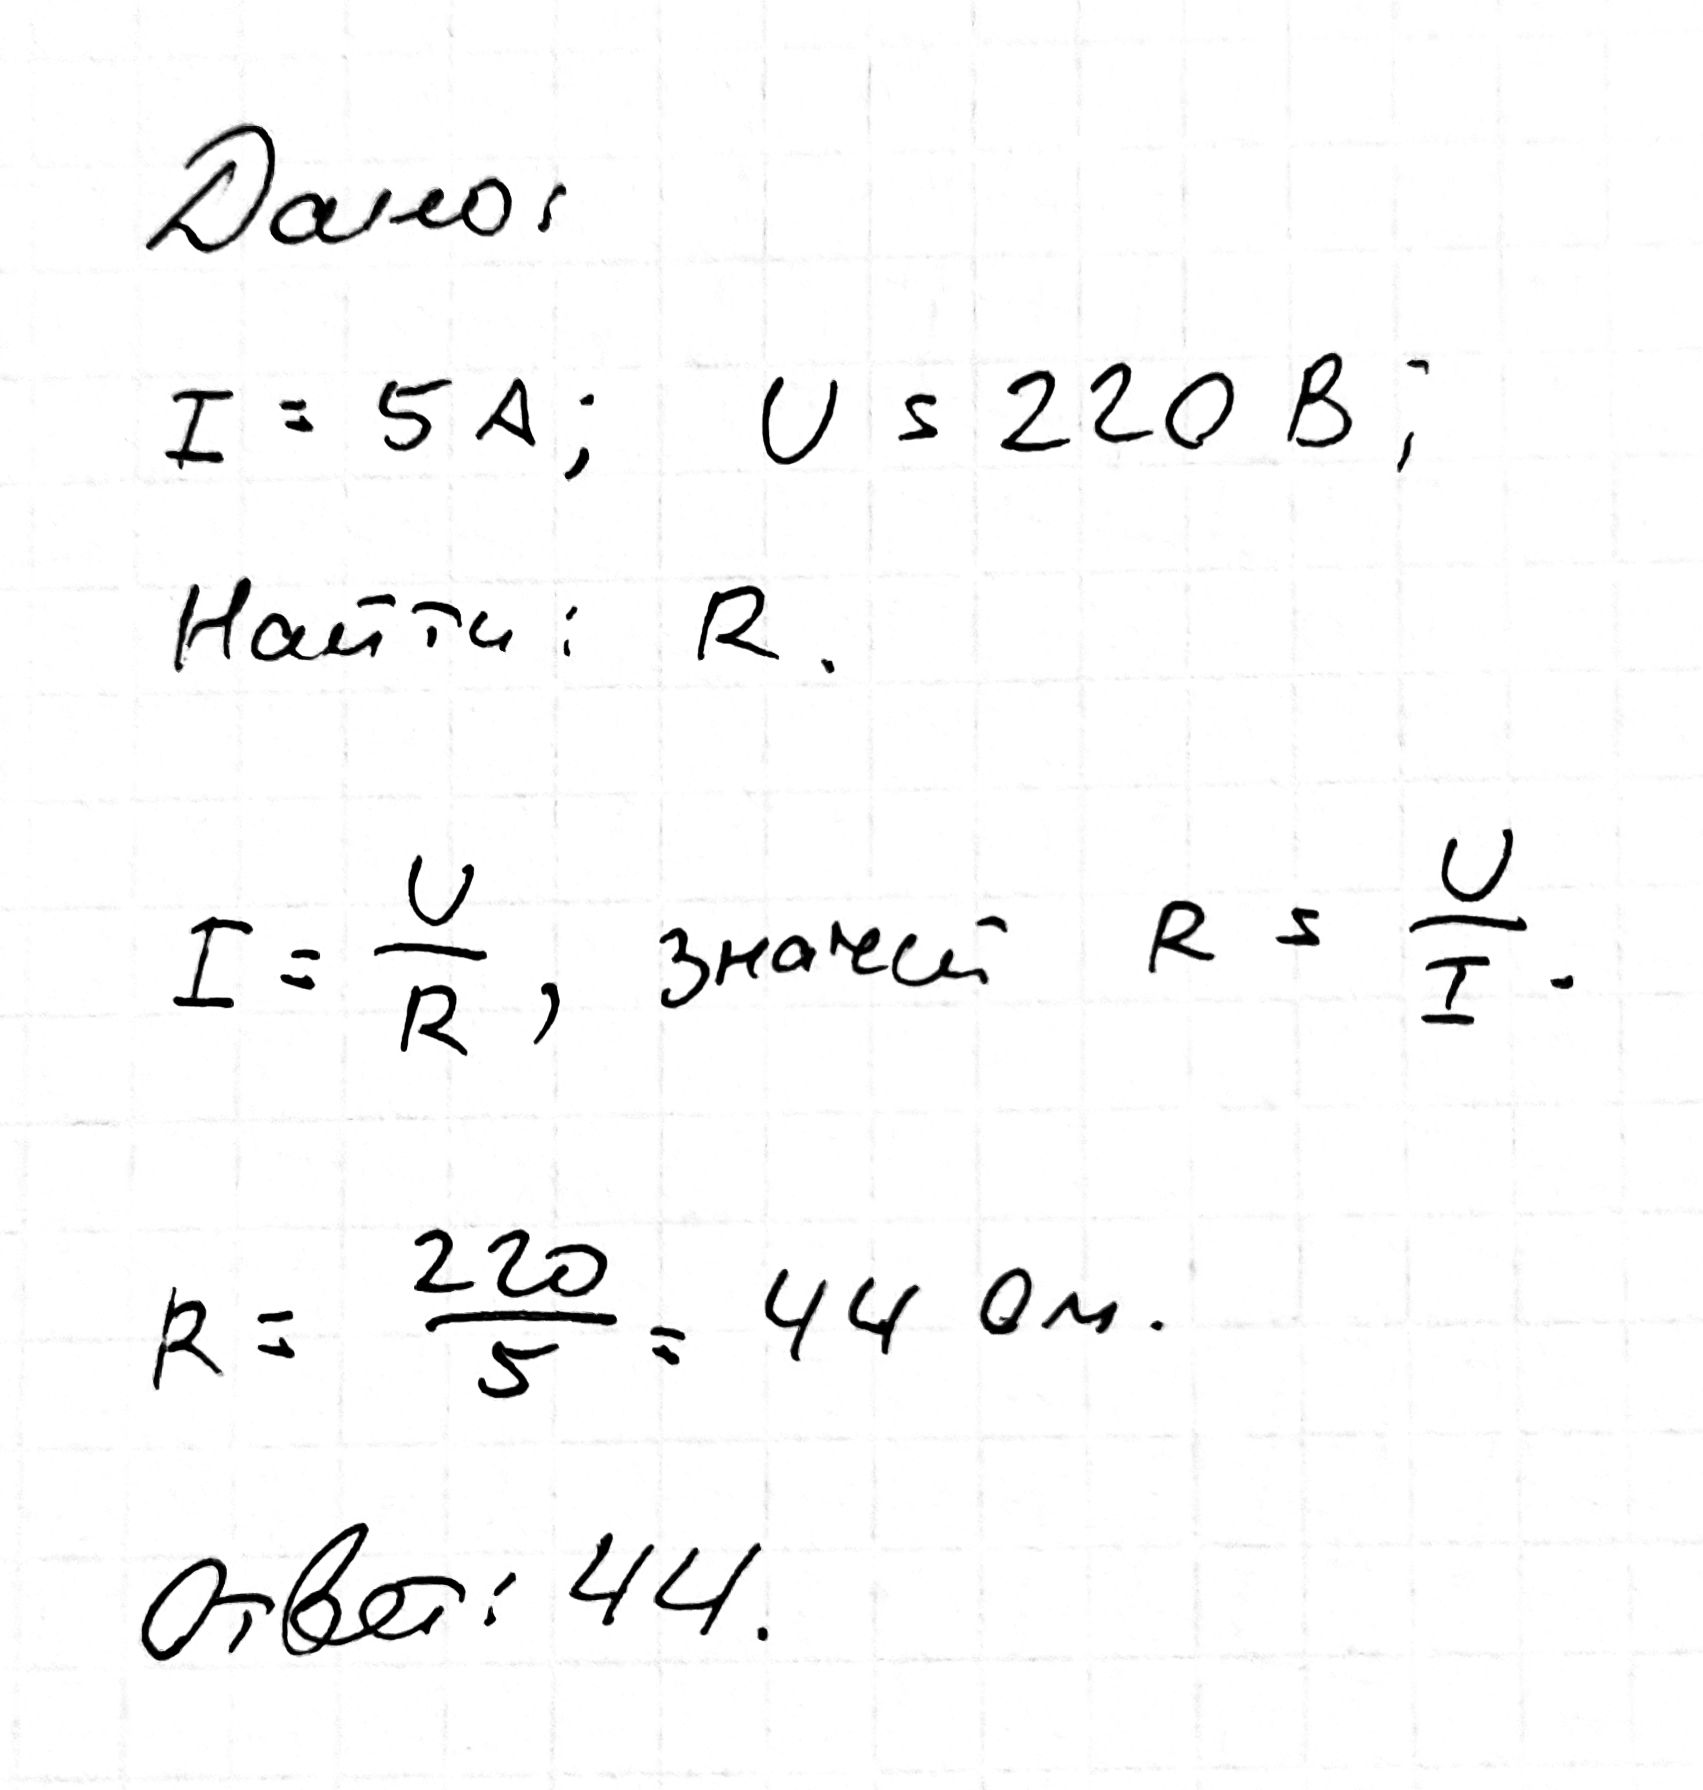 Дано:
I = 5 А; U = 220 В;
Найти: R.
I = U/R, значит R = U/I.
R = 220/5 = 44 Ом.
Ответ: 44.